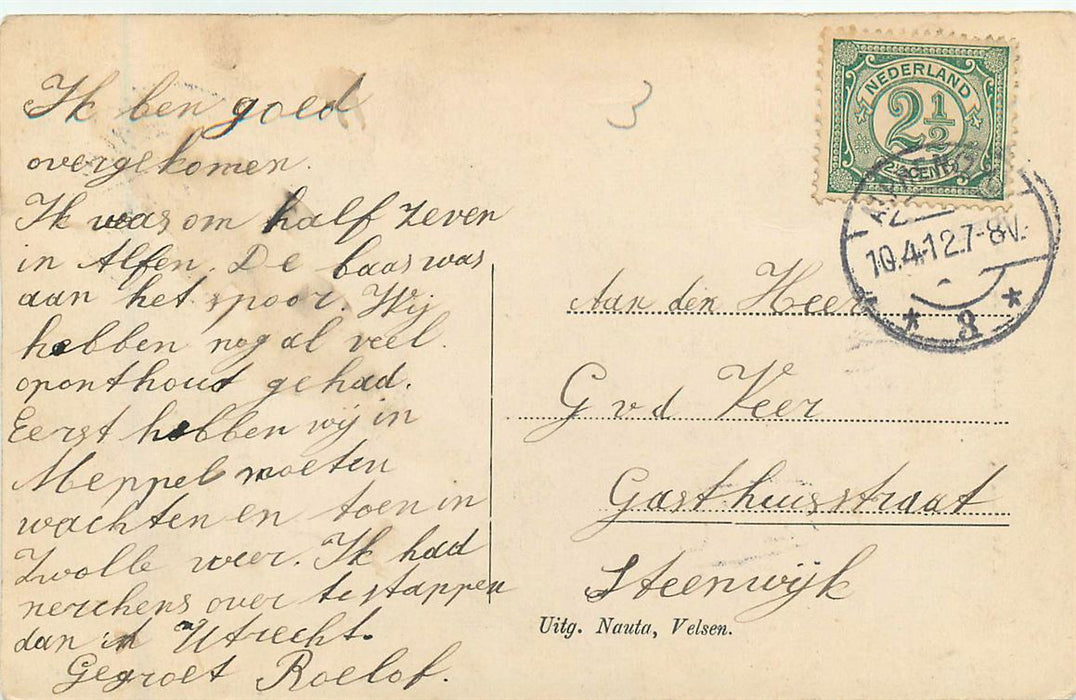 Ik ben goed
overgekomen.
Ik was om half zeven
in Alfen. De baas was
aan het spoor. Wij
hebben nog al veel
oponthout gehad.
Eerst hebben wij in
Meppel moeten
wachten en toen in
Zwolle weer. Ik had
nerchens over te stappen
dan in Utrecht.
Gegroet Roelof.
3
NEDERLAND
2½
2½ CENT
10.4.12.7-8V.
* 3 *
Aan den Heer
G v d Veer
Gasthuisstraat
Steenwijk
Uitg. Nauta, Velsen.